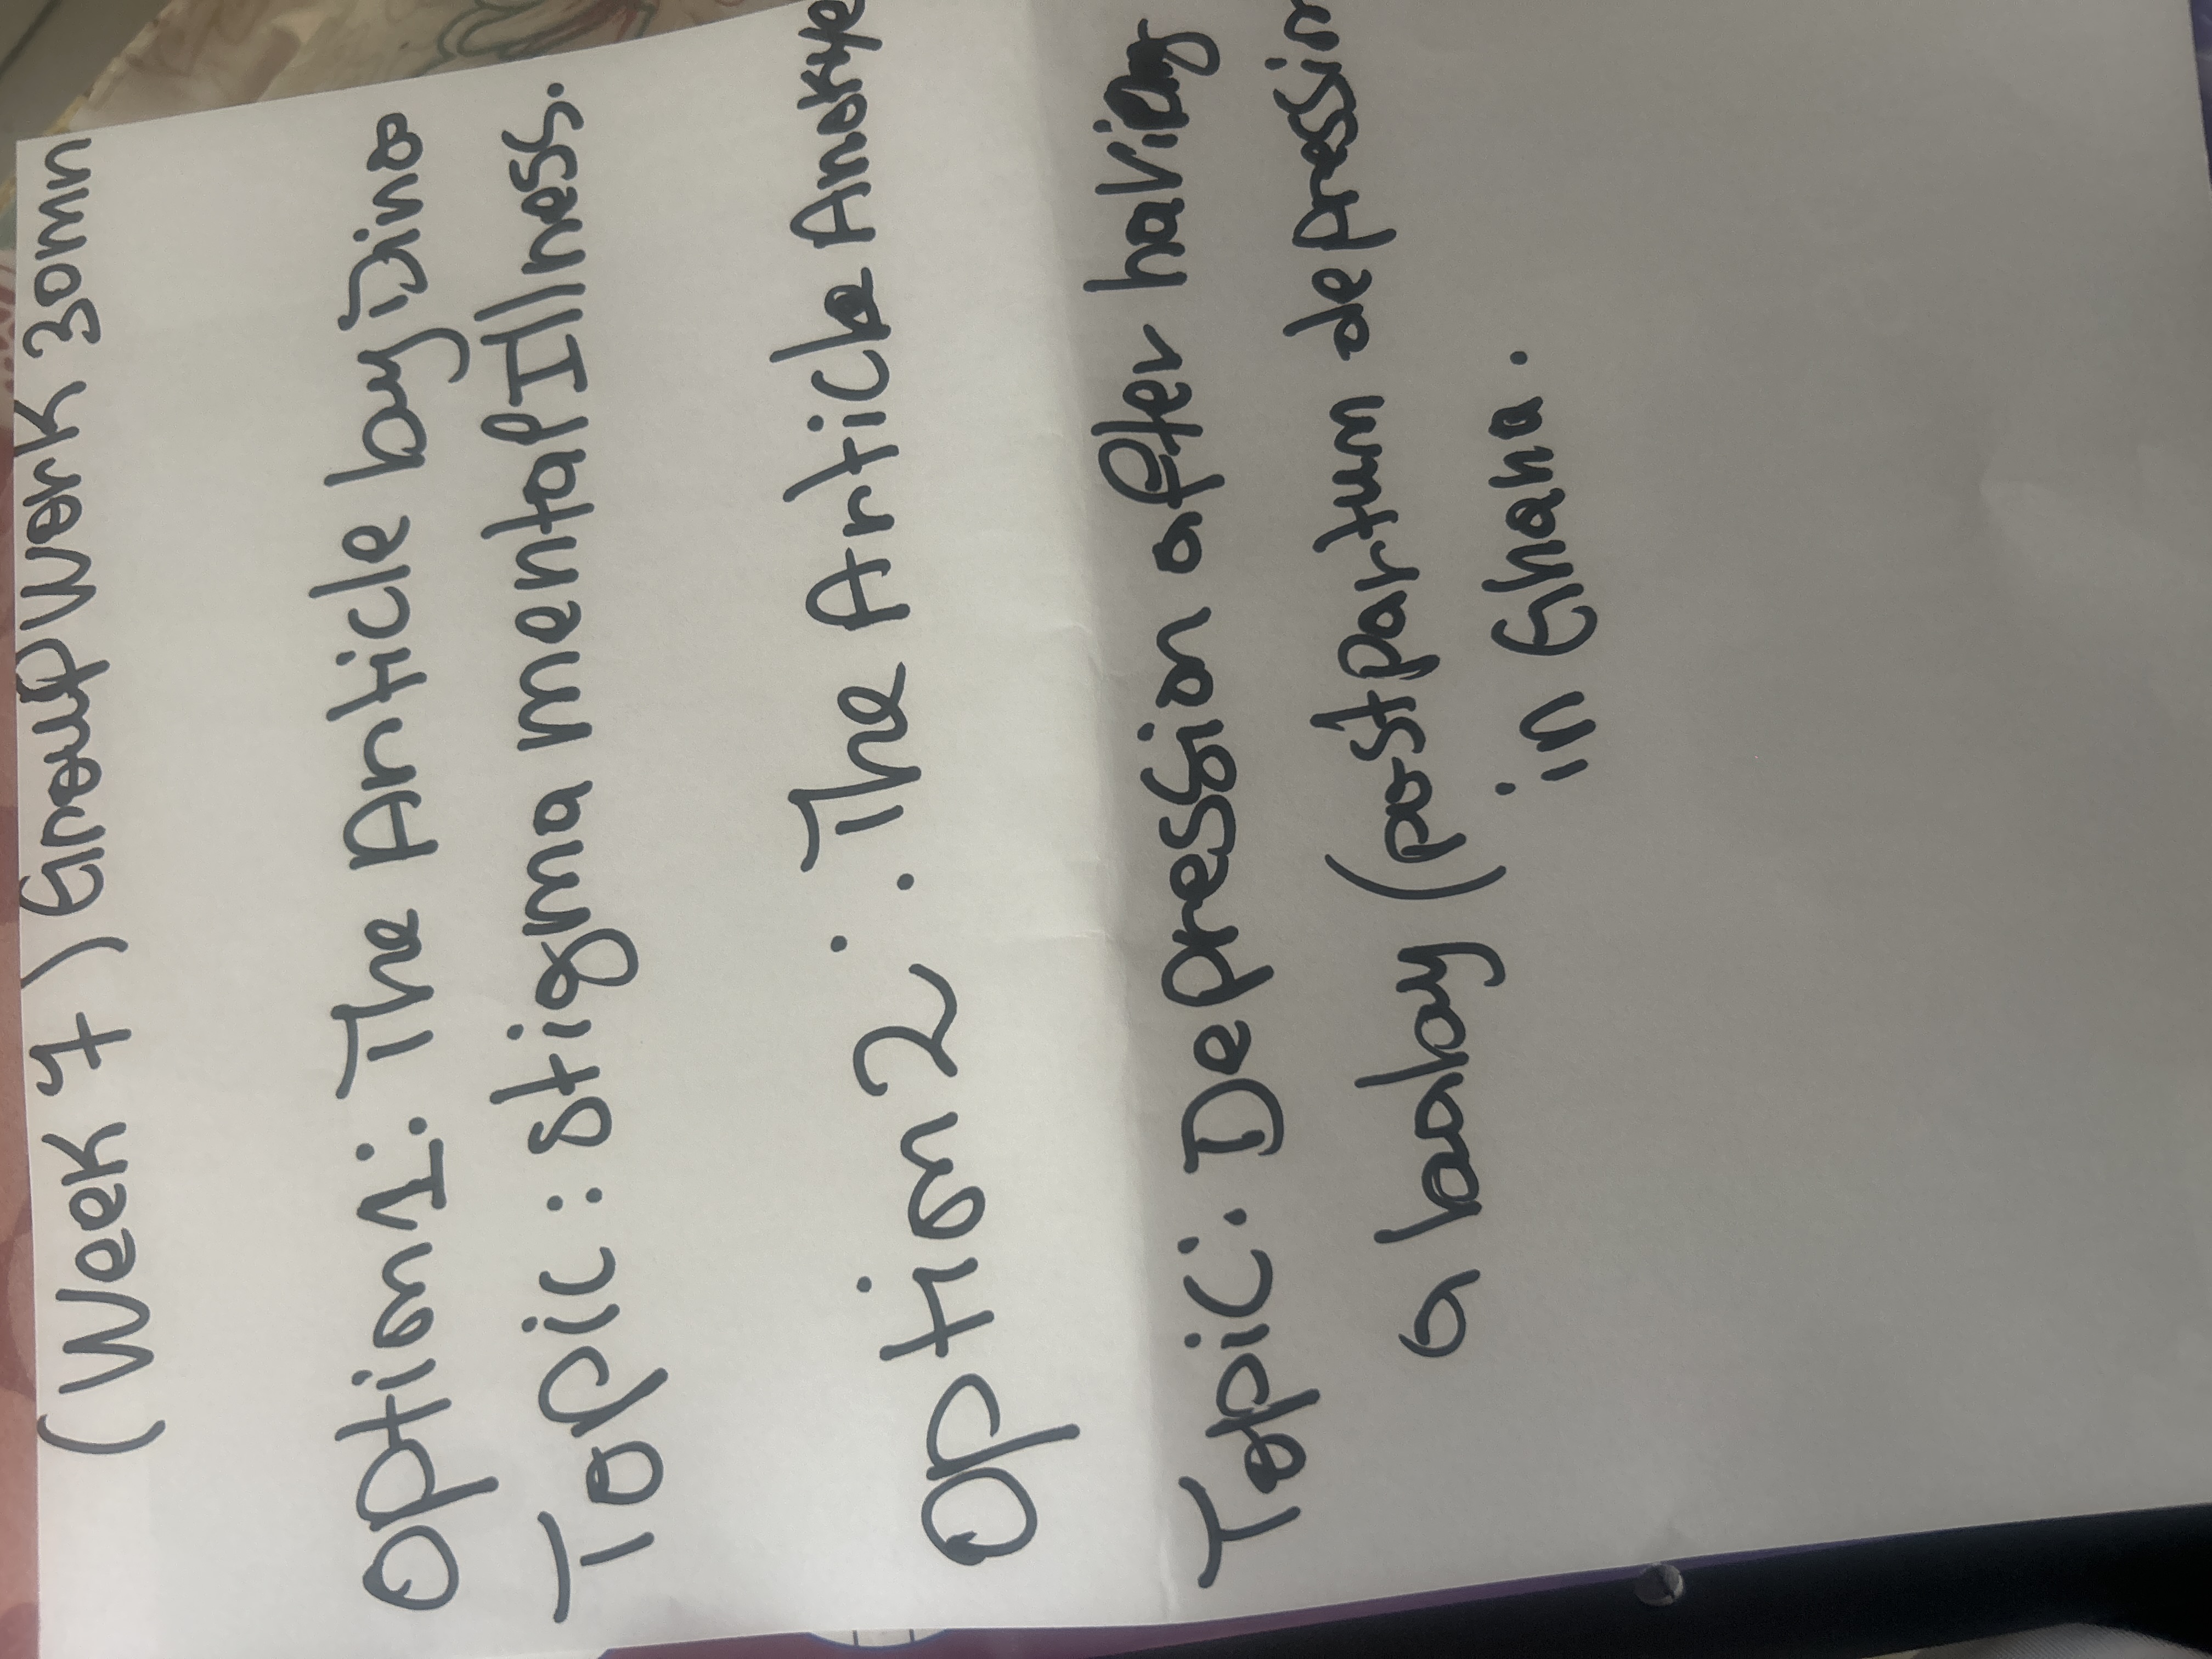 (Week 7) GroupWork 30mn
Option 1: The Article by Dina
Topic: Stigma mental Illness.
Option 2: The Article
Topic: Depression after having
a baby (postpartum depression
in Ghana.